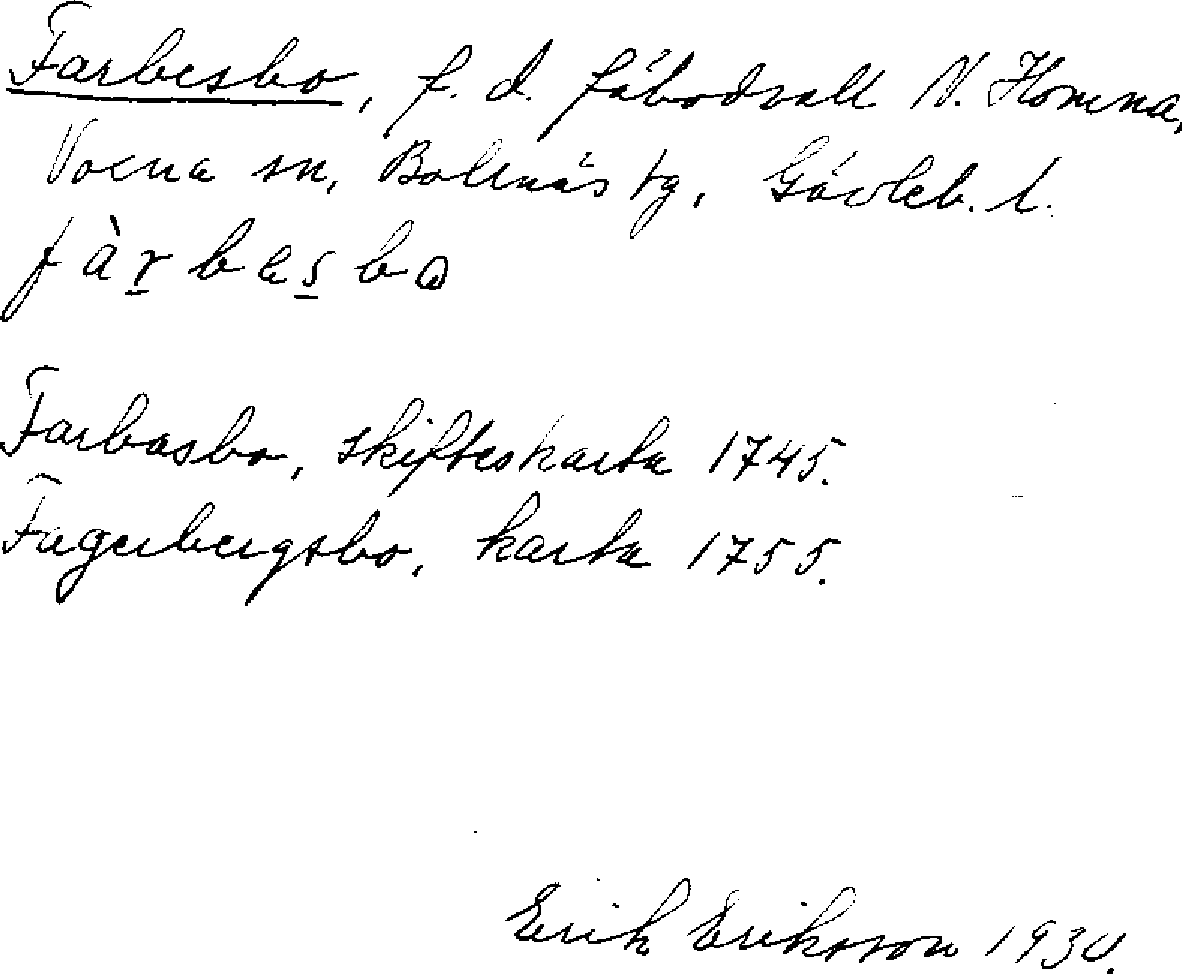 Farbesbo, f. d. fäbodvall N. Homna,
Voxna sn, Bollnäs tg, Gävleb. l.
fàrbesbo
Farbasbo, skifteskarta 1745.
Fagerbergsbo, karta 1755.
Erik Eriksson 1930.